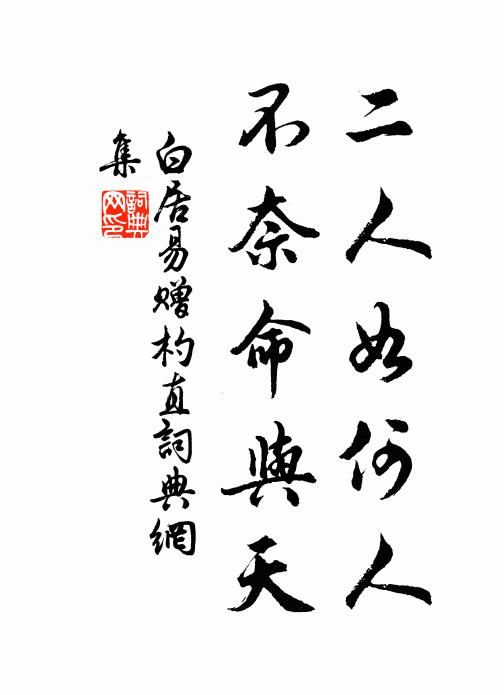 二人如何人
不奈命與天
白居易贈杓直詞典網
集
詞典
网印